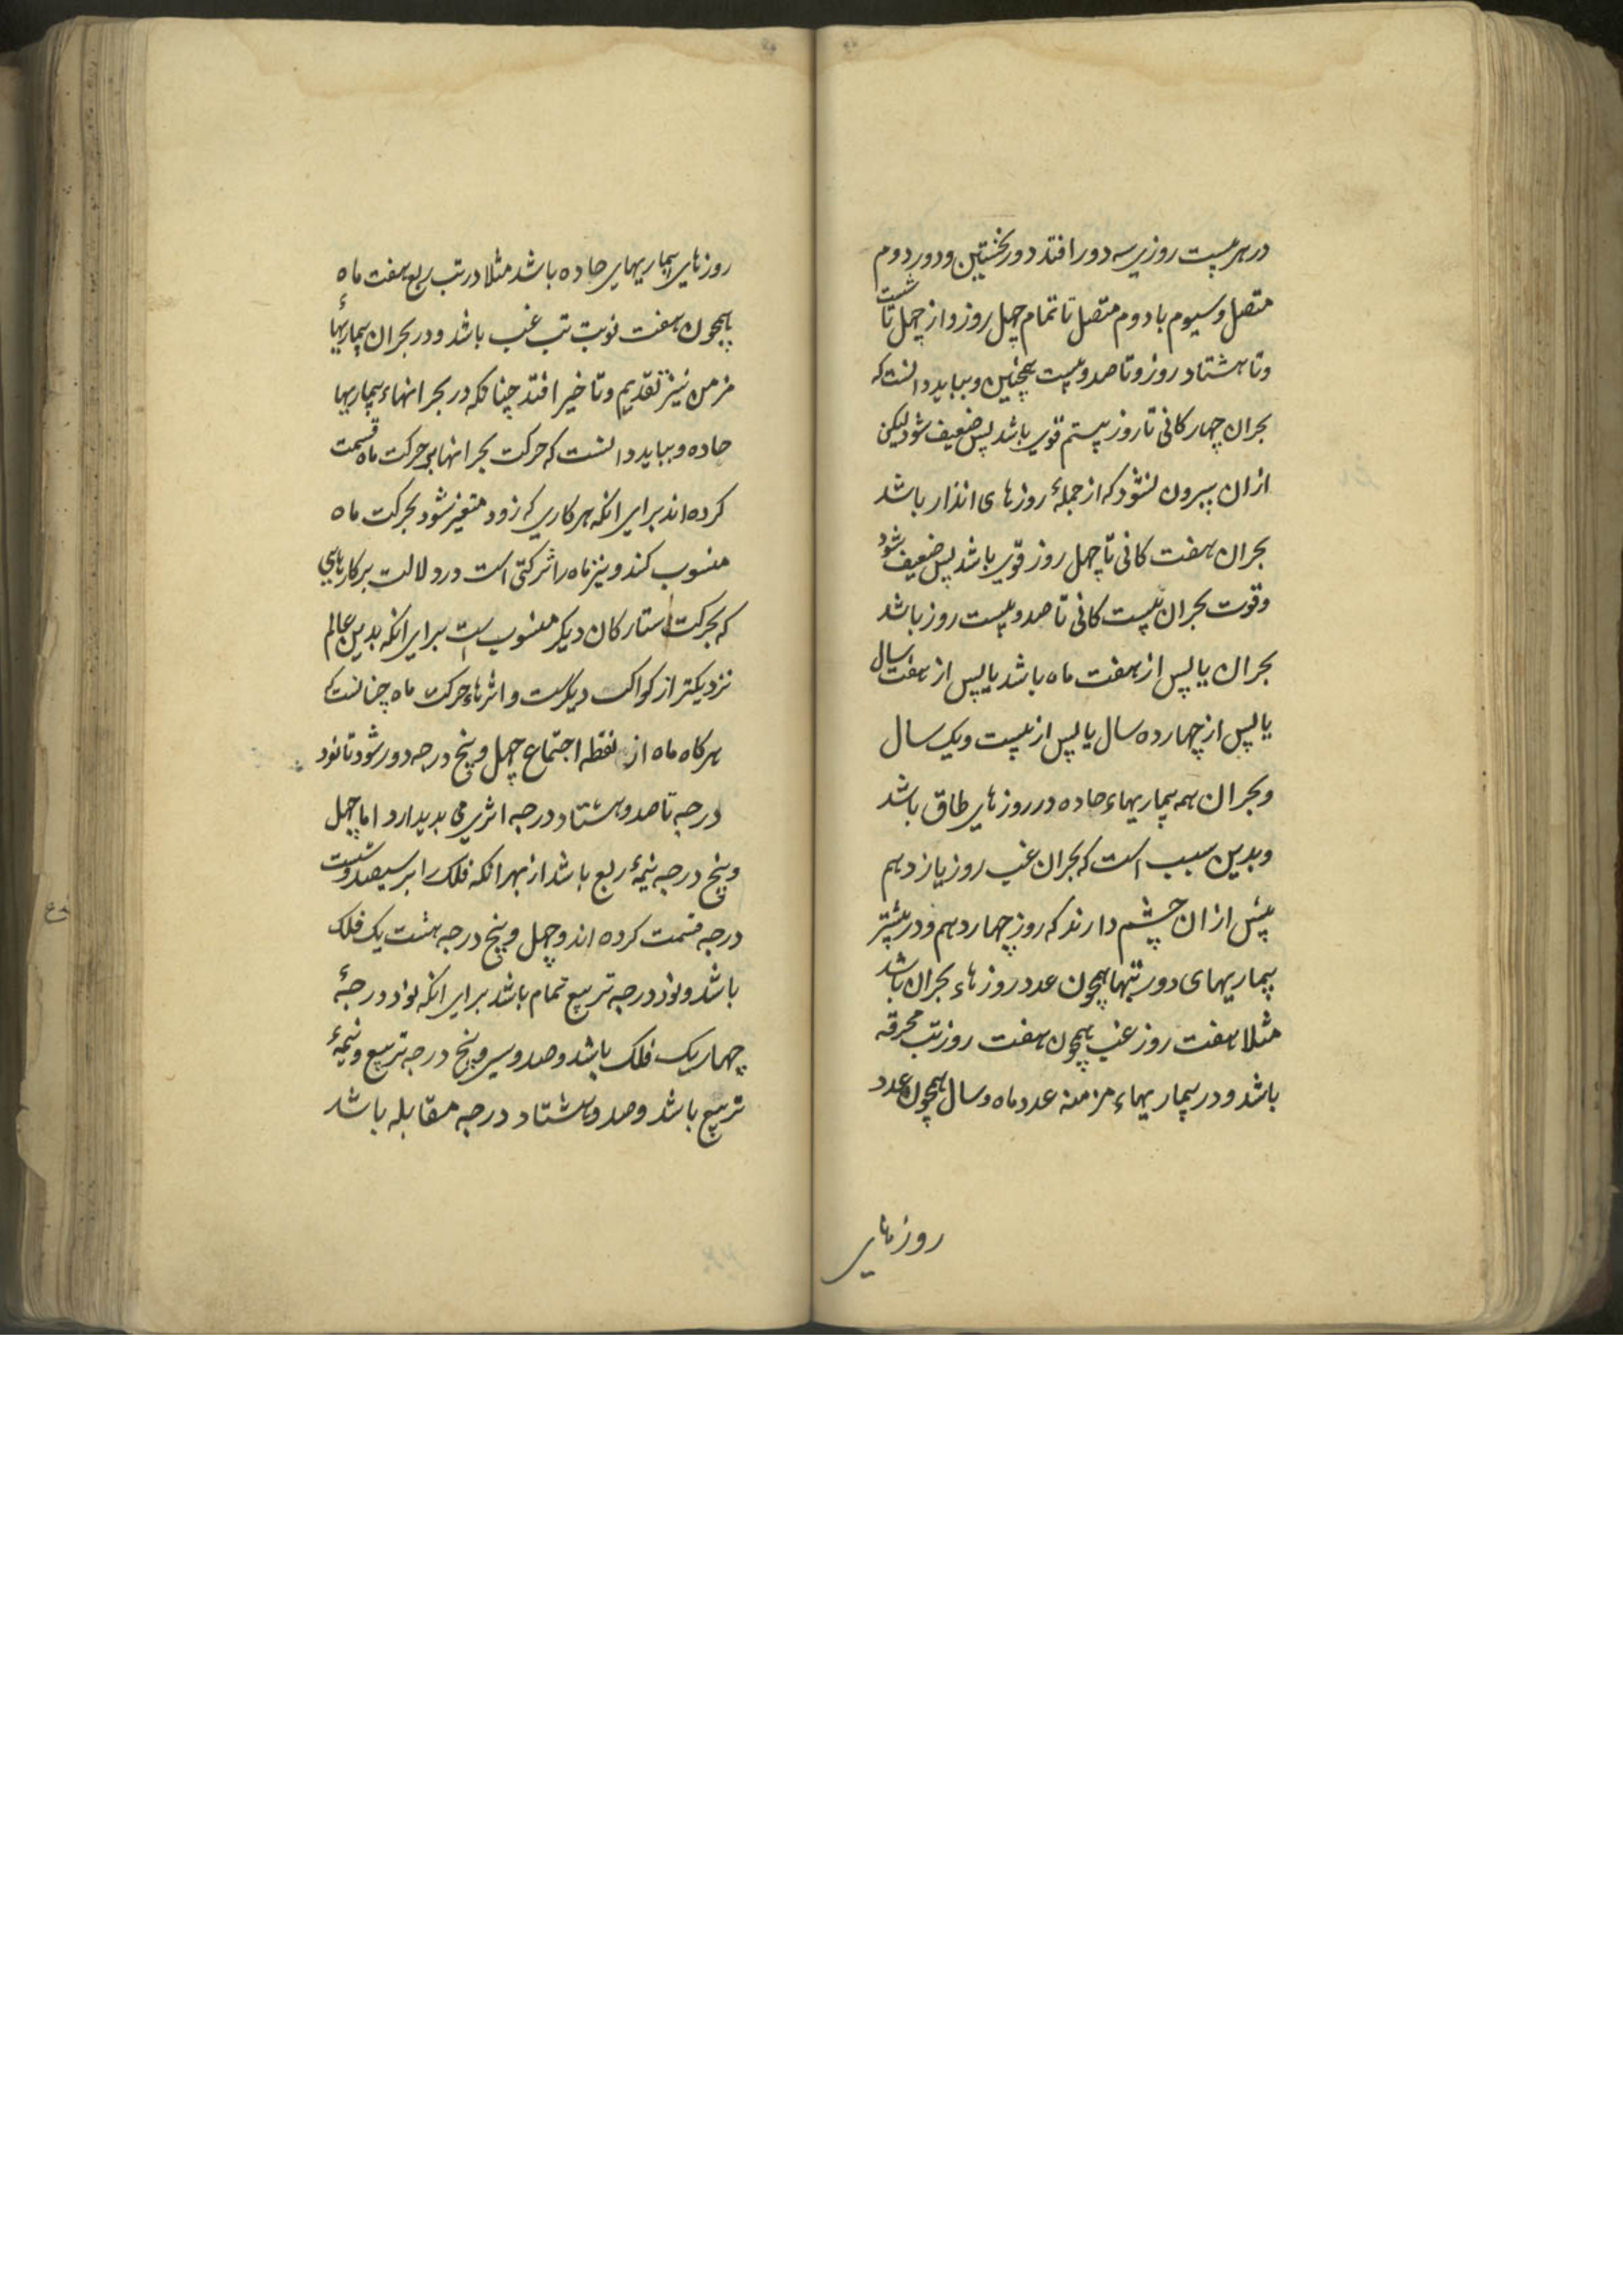 در هر بیست روزی سه دور افتد دور نخستین و دور دوم
متصل و سیوم با دوم متصل تا تمام چهل روز و از چهل تا شست
و تا هشتاد روز و تا صد و بیست همچنین و بباید دانست که
بحران چهارکانی تا روز بیستم قوی باشد پس ضعیف شود لیکن
ازان بیرون نشود که از جملهٔ روزهای انذار باشد
بحران هفت کانی تا چهل روز قوی باشد پس ضعیف شود
و قوت بحران بیست کانی تا صد و بیست روز باشد
بحران یا پس از هفت ماه باشد یا پس از هفت سال
یا پس از چهارده سال یا پس از بیست و یک سال
و بحران همه بیماریهاء حاده در روزهای طاق باشد
و بدین سبب است که بحران غب روز یازدهم
بیش ازان چشم دارند که روز چهاردهم و در بیشتر
بیماریهای دور تبها همچون عدد روزهاء بحران باشد
مثلا هفت روز غب همچون هفت روز تب محرقه
باشد و در بیماریهاء مزمنه عدد ماه و سال همچون عدد
روزهای
روزهای بیماریهای حاده باشد مثلا در تب ربع هفت ماه
همچون هفت نوبت تب غب باشد و در بحران بیماریهاء
مزمن نیز تقدیم و تاخیر افتد چنانکه در بحرانهاء بیماریها
حاده و بباید دانست که حرکت بحرانها بر حرکت ماه قسمت
کرده اند برای انکه هر کاری که زود متغیر شود بحرکت ماه
منسوب کند و نیز ماه را شرکتی است در دلالت بر کارهایی
که بحرکت ستارکان دیکر منسوب است برای انکه بدین عالم
نزدیکتر از کواکب دیگرست و اثرهاء حرکت ماه چنانست که
هرکاه ماه از نقطه اجتماع چهل و پنج درجه دور شود تا نود
درجه تا صد و هشتاد درجه اثری می بدیدارد اما چهل
و پنج درجه نیمهٔ ربع باشد از بهر انکه فلک را بر سیصد و شست
درجه قسمت کرده اند و چهل و پنج درجه هشت یک فلک
باشد و نود درجه تربیع تمام باشد برای انکه نود درجهٔ
چهار یک فلک باشد و صد و سی و پنج درجه تربیع و نیمهٔ
تربیع باشد و صد و هشتاد درجه مقابله باشد